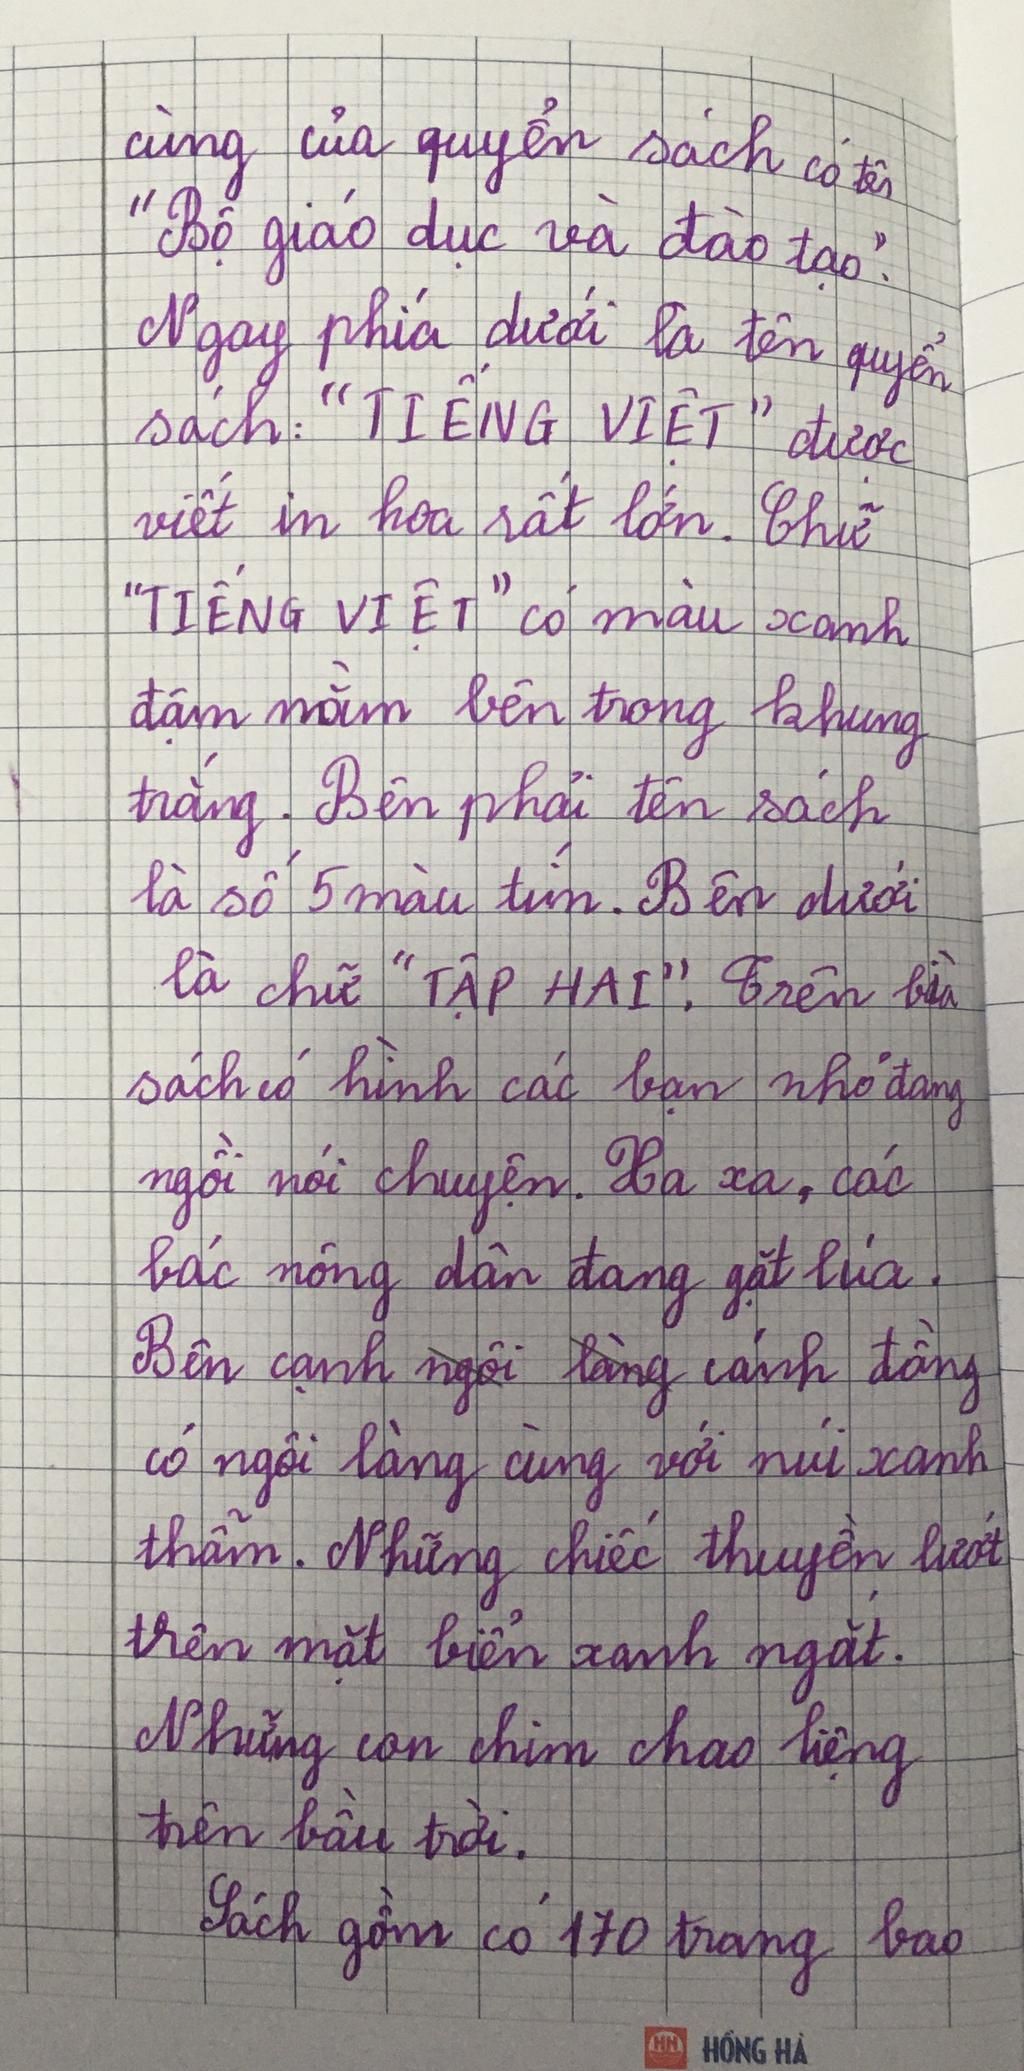 cùng của quyển sách có tên
"Bộ giáo dục và đào tạo".
Ngay phía dưới là tên quyển
sách: "TIẾNG VIỆT" được
viết in hoa rất lớn. Chữ
"TIẾNG VIỆT" có màu xanh
đậm nằm bên trong khung
trắng. Bên phải tên sách
là số 5 màu tím. Bên dưới
là chữ "TẬP HAI". Trên bìa
sách có hình các bạn nhỏ đang
ngồi nói chuyện. Xa xa, các
bác nông dân đang gặt lúa.
Bên cạnh ngôi làng cánh đồng
có ngôi làng cùng với núi xanh
thẫm. Những chiếc thuyền lướt
trên mặt biển xanh ngắt.
Những con chim chao liệng
trên bầu trời.
Sách gồm có 170 trang bao
HN HỒNG HÀ